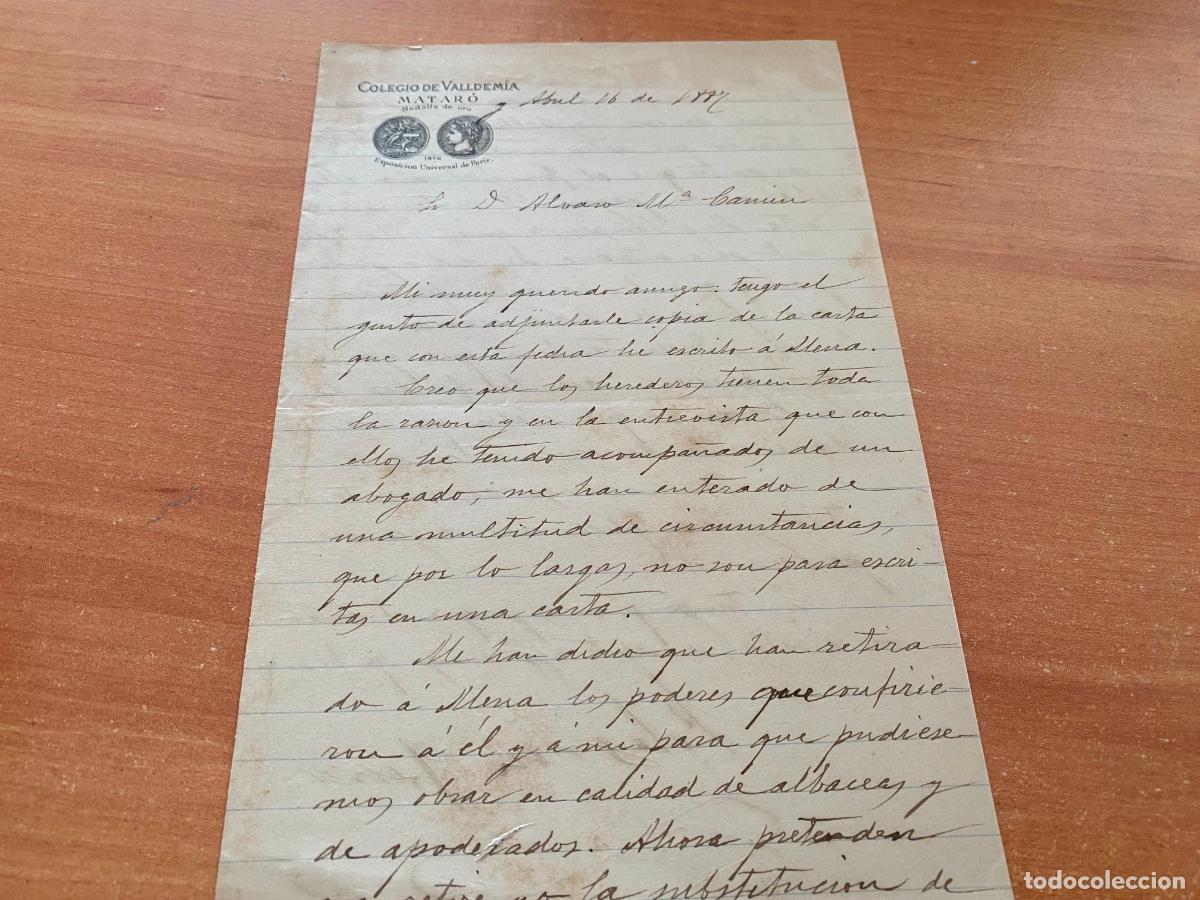 COLEGIO DE VALLDEMÍA
MATARÓ
Medalla de oro
1878
Exposicion Universal de Paris.
Abril 16 de 1887
Sr D Alvaro Mª Camin
Mi muy querido amigo: tengo el
gusto de adjuntarle copia de la carta
que con esta fecha he escrito á Mena.
Creo que los herederos tienen toda
la razon y en la entrevista que con
ellos he tenido acompañados de un
abogado, me han enterado de
una multitud de circunstancias,
que por lo largas, no son para escri-
tas en una carta.
Me han dicho que han retira-
do á Mena los poderes que confirie-
ron á él y á mi para que pudiese
mos obrar en calidad de albaceas y
de apoderados. Ahora pretenden
retire yo la substitucion de
todocoleccion